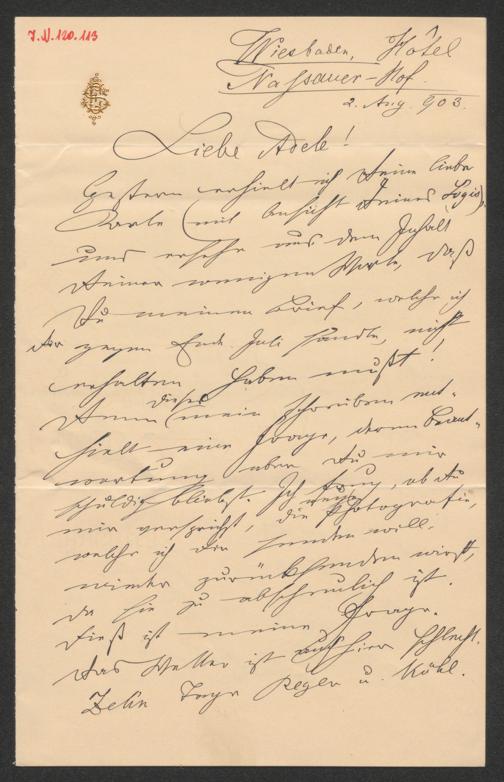 I.N. 120.113
Wiesbaden, Hôtel
Nassauer-Hof.
2. Aug. 903.
Liebe Adele!
Gestern erhielt ich Deine liebe
Karte (mit Ansicht Deines Logis),
und ersehe aus dem Inhalt
Deiner wenigen Worte, daß
Du meinen Brief, welche ich
Dir gegen Ende Juli sandte, nicht
erhalten haben mußt!
Denn (dieses mein Schreiben ent-
hielt eine Frage, deren Beant-
wortung aber Du mir
schuldig bliebst. Ich frug, ob Du
mir versprichst, die neue Photografie,
welche ich Dir senden will,
wieder zurücksenden wirst,
da sie zu abscheulich ist.
Dieß ist meine Frage.
Das Wetter ist auch hier schlecht.
Zehn Tage Regen u. Kühl.